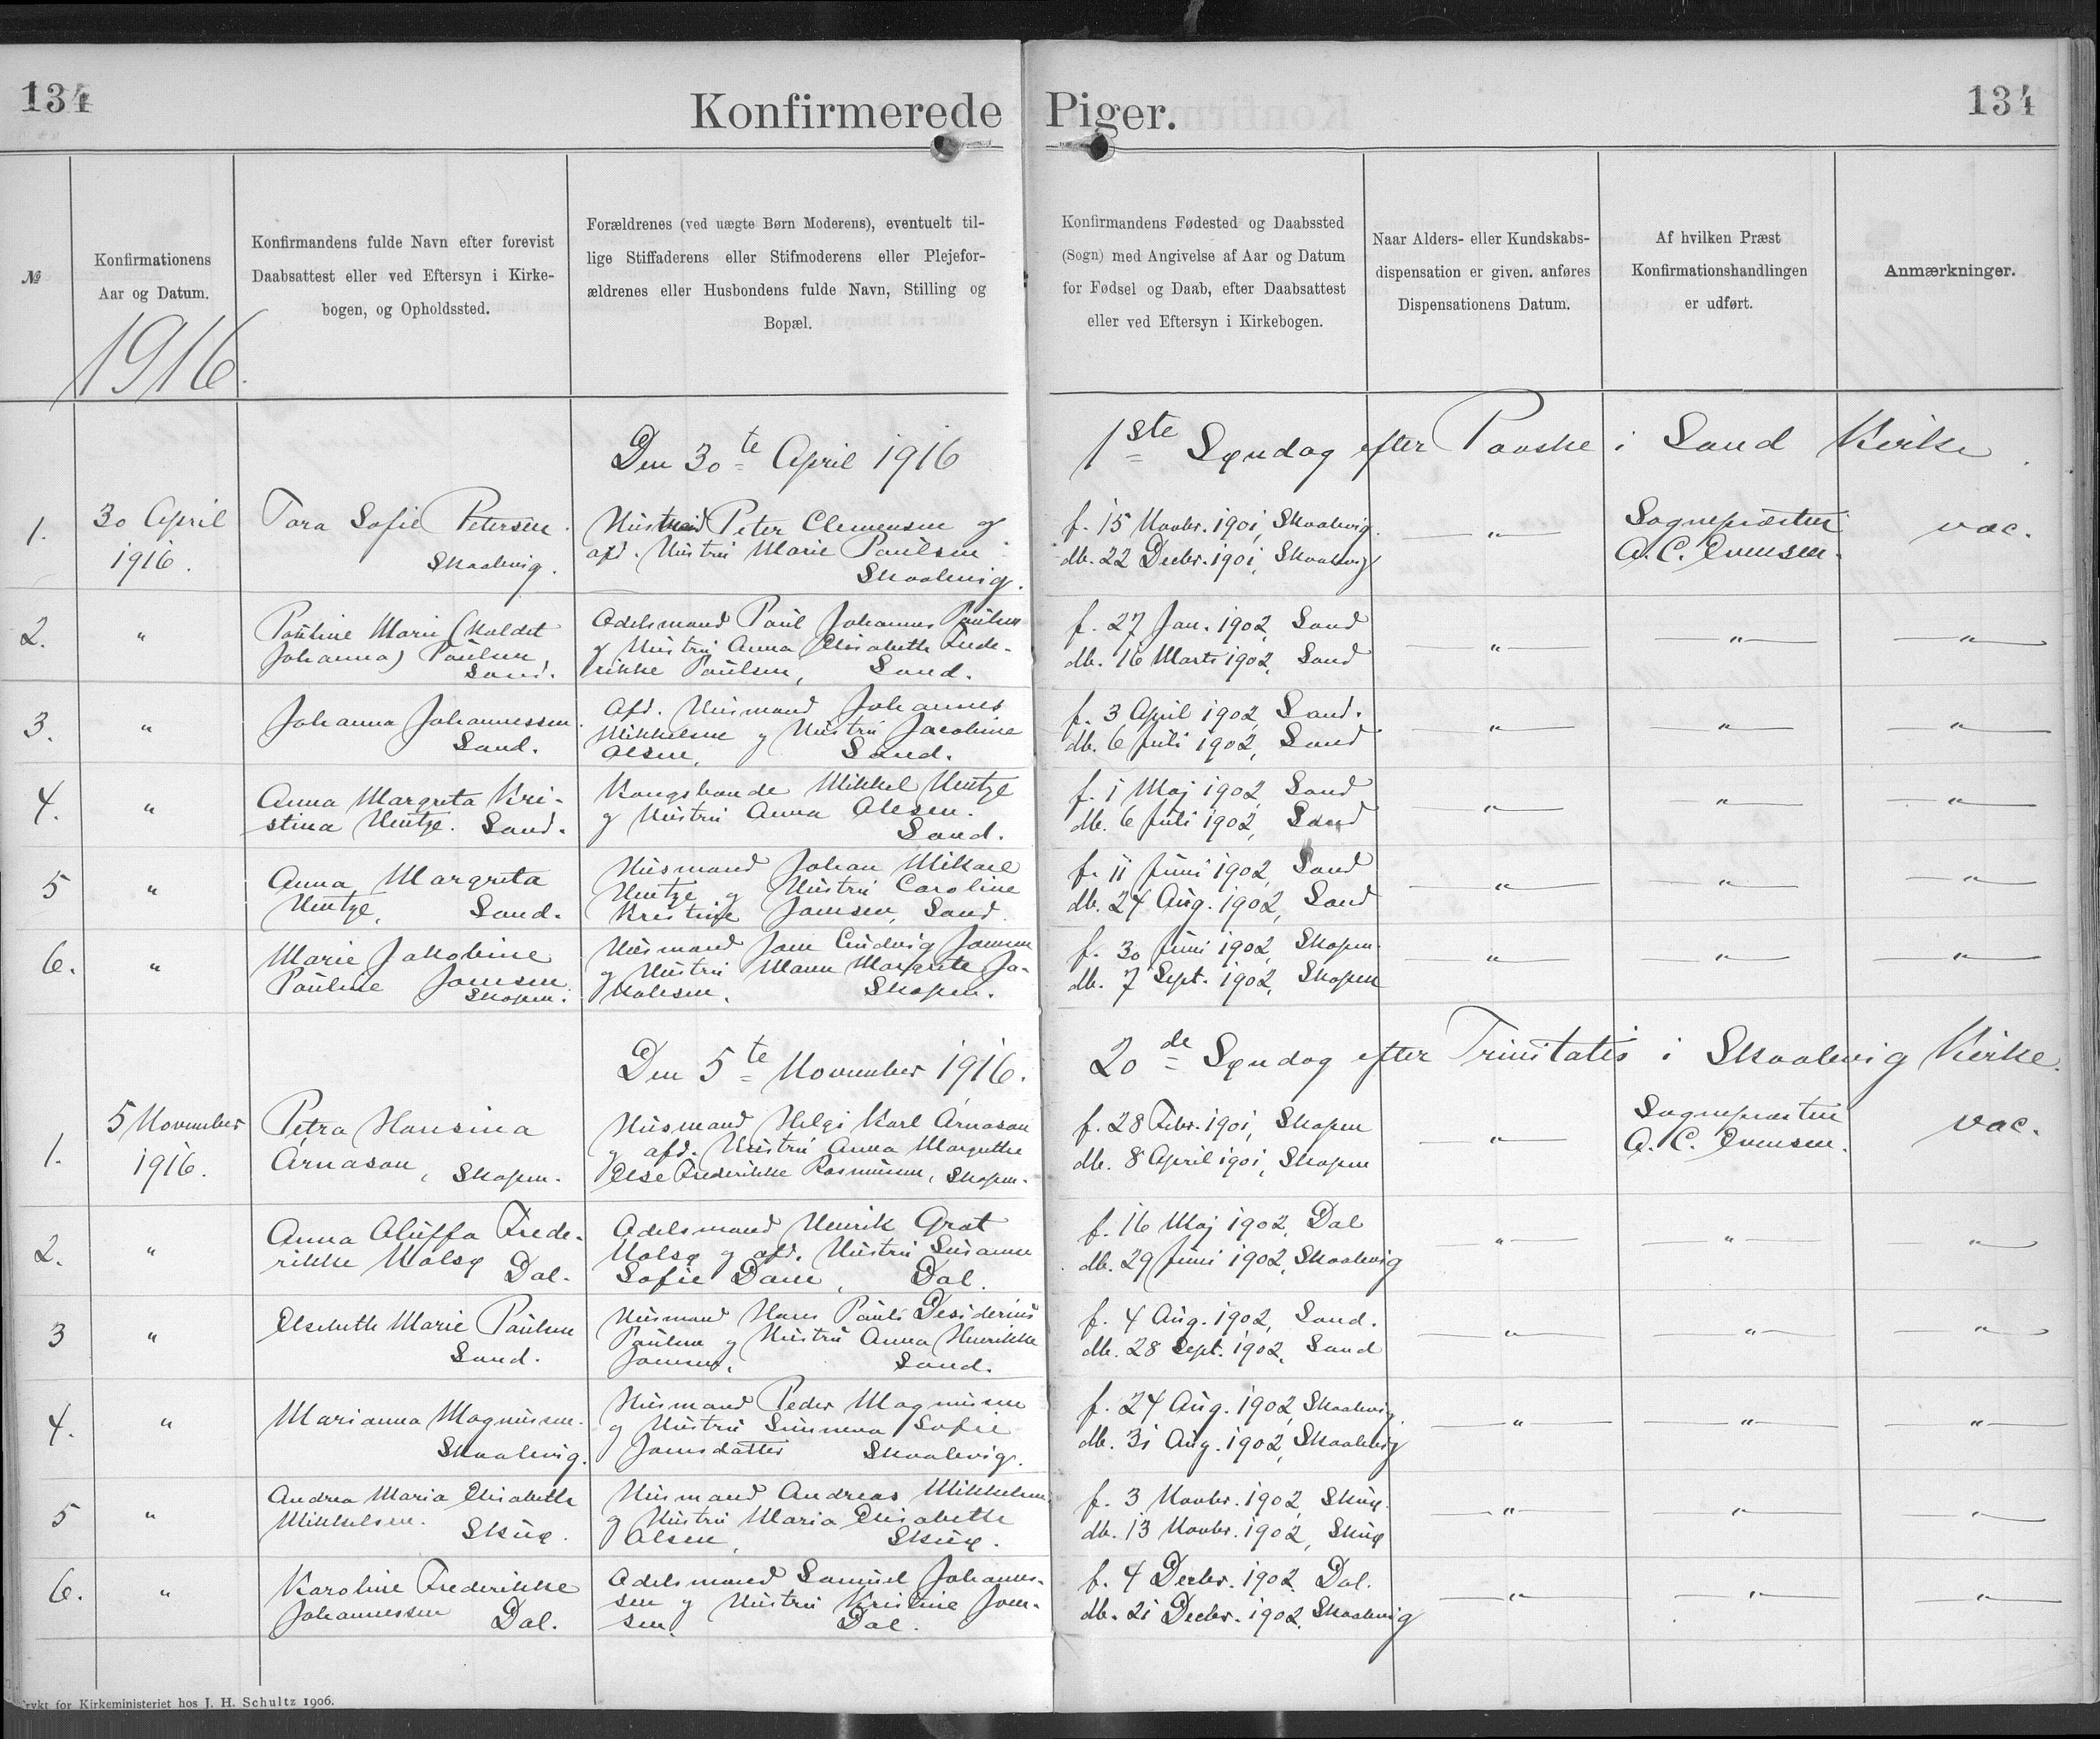 134
Konfirmerede Piger.
134
№
Konfirmationens
Aar og Datum.
Konfirmandens fulde Navn efter forevist
Daabsattest eller ved Eftersyn i Kirke-
bogen, og Opholdssted.
Forældrenes (ved uægte Børn Moderens), eventuelt til-
lige Stiffaderens eller Stifmoderens eller Plejefor-
ældrenes eller Husbondens fulde Navn, Stilling og
Bopæl.
Konfirmandens Fødested og Daabssted
(Sogn) med Angivelse af Aar og Datum
for Fødsel og Daab, efter Daabsattest
eller ved Eftersyn i Kirkebogen.
Naar Alders- eller Kundskabs-
dispensation er given. anføres
Dispensationens Datum.
Af hvilken Præst
Konfirmationshandlingen
er udført.
Anmærkninger.
1916.
Den 30te April 1916
1ste Søndag efter Paaske i Sand Kirke
1.
30 April
1916.
Tora Sofie Petersen.
Skaalevig.
Husmand Peter Clemensen og
afd. Hustru Marie Paulsen
Skaalevig.
f. 15 Novbr. 1901, Skaalevig.
db. 22 Decbr. 1901, Skaalevig
"
Sognepræsten
A. C. Evensen.
vac.
2.
"
Pauline Marie (kaldet
Johanna) Paulsen,
Sand.
Odelsmand Paul Johannes Paulsen
og Hustru Anna Elisabeth Frede-
rikke Paulsen, Sand.
f. 27 Jan. 1902, Sand
db. 16 Marts 1902, Sand
"
"
"
3.
"
Johanna Johannessen.
Sand.
Afd. Husmand Johannes
Mikkelsen og Hustru Jacobine
Olsen, Sand.
f. 3 April 1902, Sand.
db. 6 Juli 1902, Sand
"
"
"
4.
"
Anna Margreta Kri-
stina Hentze. Sand.
Kongsbonde Mikkel Hentze
og Hustru Anna Olesen.
Sand.
f. 1 Maj 1902, Sand
db. 6 Juli 1902, Sand
"
"
"
5
"
Anna Margreta
Hentze, Sand.
Husmand Johan Mikael
Hentze og Hustru Caroline
Kristine Joensen, Sand.
f. 11 Juni 1902, Sand
db. 24 Aug. 1902, Sand
"
"
"
6.
"
Marie Jakobine
Pauline Joensen
Skopen.
Husmand Joen Ludvig Joensen
og Hustru Maren Margrete Ja-
kobsen, Skopen.
f. 30 Juni 1902, Skopen.
db. 7 Sept. 1902, Skopen
"
"
"
Den 5te November 1916.
20de Søndag efter Trinitatis i Skaalevig Kirke.
1.
5 November
1916.
Petra Hansina
Árnason, Skopen.
Husmand Helgi Karl Árnason
og afd. Hustru Anna Margrethe
Else Frederikke Rasmussen, Skopen.
f. 28 Febr. 1901, Skopen
db. 8 April 1901, Skopen
"
Sognepræsten
A. C. Evensen.
vac.
2.
"
Anna Oluffa Frede-
rikke Kolsø Dal.
Odelsmand Henrik Grat
Kolsø og afd. Hustru Susanne
Sofie Dam, Dal.
f. 16 Maj 1902, Dal
db. 29 Juni 1902, Skaalevig
"
"
"
3
"
Elsebeth Marie Paulsen
Sand.
Husmand Hans Pauli Desiderius
Paulsen og Hustru Anna Henrikke
Joensen, Sand.
f. 4 Aug. 1902, Sand.
db. 28 Sept. 1902, Sand
"
"
"
4.
"
Marianna Magnussen.
Skaalevig.
Husmand Peder Magnussen
og Hustru Sunneva Sofie
Joensdatter Skaalevig.
f. 24 Aug. 1902, Skaalevig.
db. 31 Aug. 1902, Skaalevig
"
"
"
5
"
Andrea Maria Elisabeth
Mikkelsen. Skuø.
Husmand Andreas Mikkelsen
og Hustru Maria Elisabeth
Olsen, Skuø.
f. 3 Novbr. 1902, Skuø.
db. 13 Novbr. 1902, Skuø
"
"
"
6.
"
Karoline Frederikke
Johannessen Dal.
Odelsmand Samuel Johannes-
sen og Hustru Kristine Joen-
sen. Dal.
f. 4 Decbr. 1902. Dal.
db. 21 Decbr. 1902. Skaalevig
"
"
"
Trykt for Kirkeministeriet hos J. H. Schultz 1906.